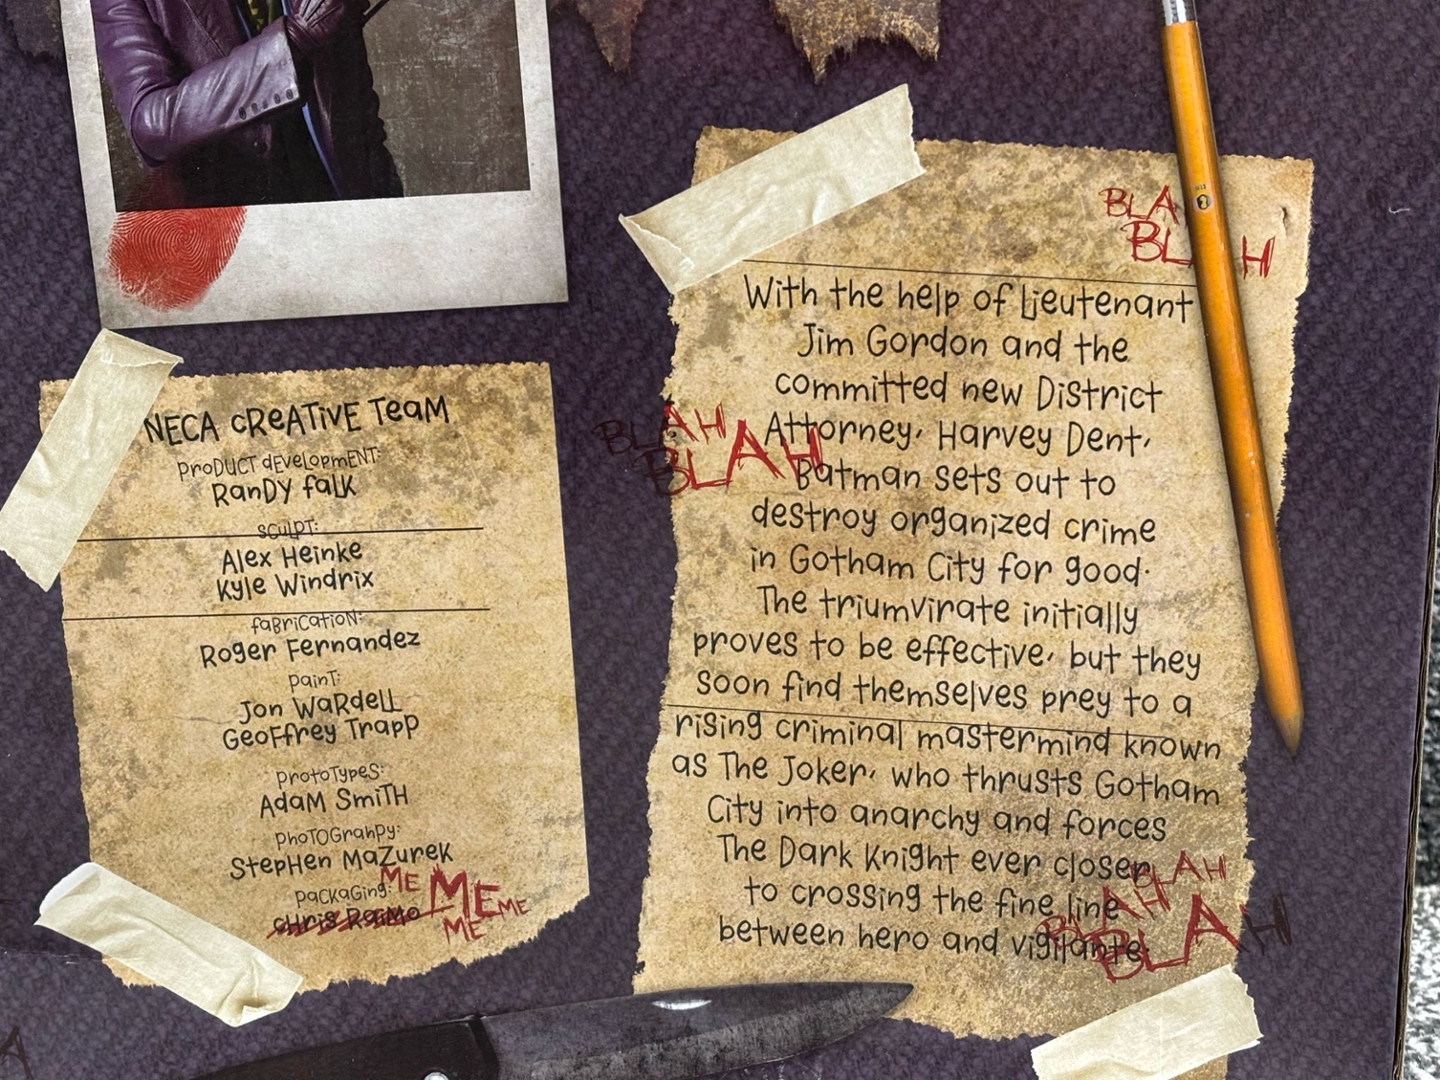 NECA CREATIVE TEAM
PRODUCT DEVELOPMENT:
RANDY FALK
SCULPT:
Alex Heinke
Kyle Windrix
FABRICATION:
Roger Fernandez
PAINT:
Jon Wardell
Geoffrey Trapp
PROTOTYPES:
Adam Smith
PHOTOGRAHPY:
Stephen Mazurek
PACKAGING:
Chris Raimo
ME ME ME
ME
BLA
BL H
With the help of Lieutenant
Jim Gordon and the
committed new District
Attorney, Harvey Dent,
Batman sets out to
destroy organized crime
in Gotham City for good.
The triumvirate initially
proves to be effective, but they
soon find themselves prey to a
rising criminal mastermind known
as The Joker, who thrusts Gotham
City into anarchy and forces
The Dark Knight ever closer
to crossing the fine line
between hero and vigilante.
BLAH
BLAH
BLAH
BLAH
BLAH